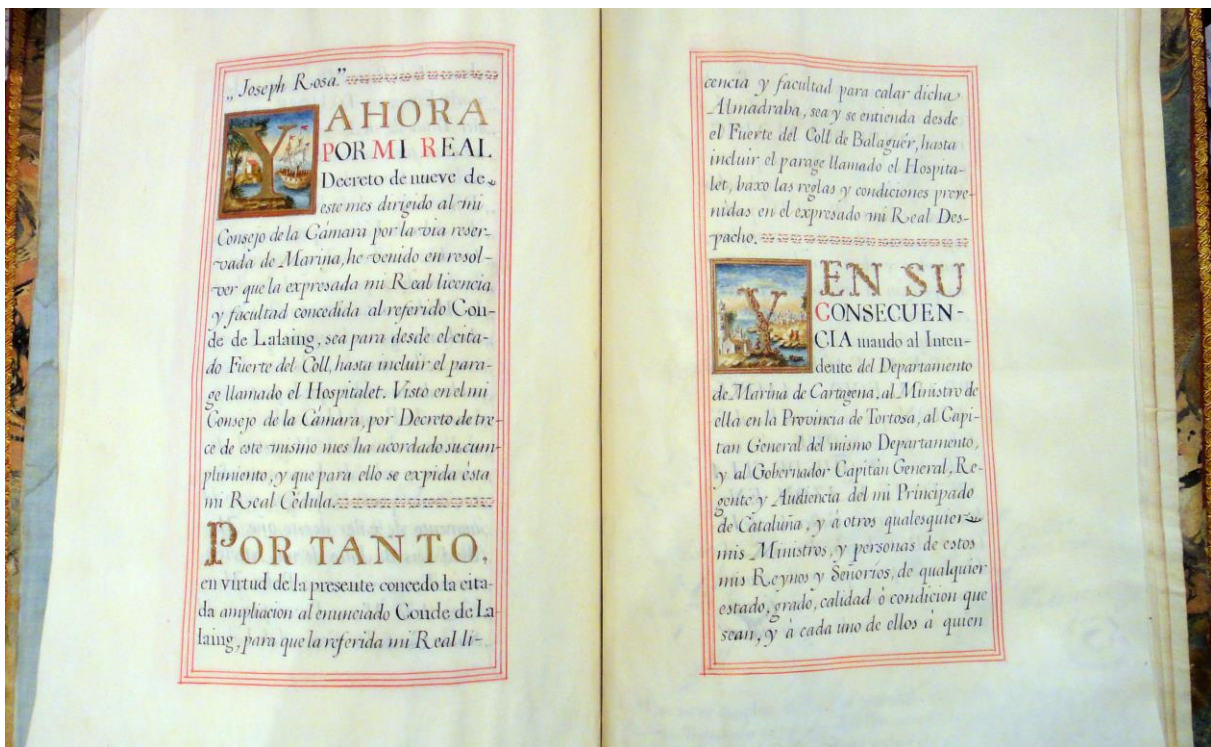 „Joseph Rosa.”
Y AHORA
POR MI REAL
Decreto de nueve de
este mes dirigido al mi
Consejo de la Cámara por la via reser-
vada de Marina, he venido en resol-
ver que la expresada mi Real licencia
y facultad concedida al referido Con-
de de Lalaing, sea para desde el cita-
do Fuerte del Coll, hasta incluir el para-
ge llamado el Hospitalet. Visto en el mi
Consejo de la Cámara, por Decreto de tre-
ce de este mismo mes ha acordado su cum-
plimiento, y que para ello se expida ésta
mi Real Cédula.
POR TANTO,
en virtud de la presente concedo la cita-
da ampliacion al enunciado Conde de La-
laing, para que la referida mi Real li-
cencia y facultad para calar dicha
Almadraba, sea y se entienda desde
el Fuerte del Coll de Balaguér, hasta
incluir el parage llamado el Hospita-
let, baxo las reglas y condiciones preve-
nidas en el expresado mi Real Des-
pacho.
Y EN SU
CONSECUEN-
CIA mando al Inten-
dente del Departamento
de Marina de Cartagena, al Ministro de
ella en la Provincia de Tortosa, al Capi-
tan General del mismo Departamento,
y al Gobernador Capitán General, Re-
gente y Audiencia del mi Principado
de Cataluña, y á otros qualesquier
mis Ministros, y personas de estos
mis Reynos y Señoríos, de qualquier
estado, grado, calidad ò condicion que
sean, y à cada uno de ellos á quien